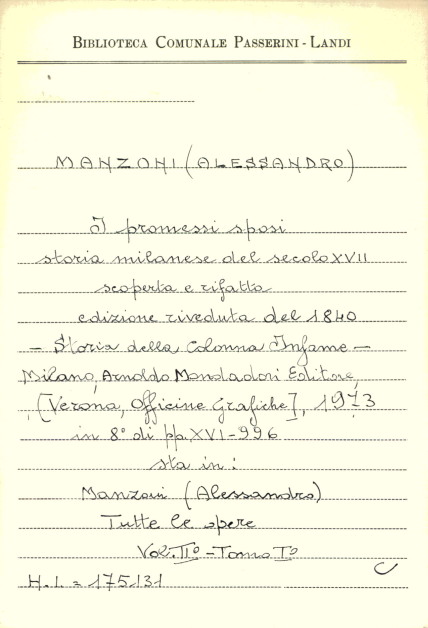 BIBLIOTECA COMUNALE PASSERINI - LANDI
MANZONI (ALESSANDRO)
I promessi sposi
storia milanese del secolo XVII
scoperta e rifatta
edizione riveduta del 1840
- Storia della Colonna Infame -
Milano, Arnoldo Mondadori Editore,
[Verona, Officine Grafiche], 1973
in 8° di pp. XVI-996
sta in:
Manzoni (Alessandro)
Tutte le opere
Vol. II° - Tomo I°
H.I. = 175131
C